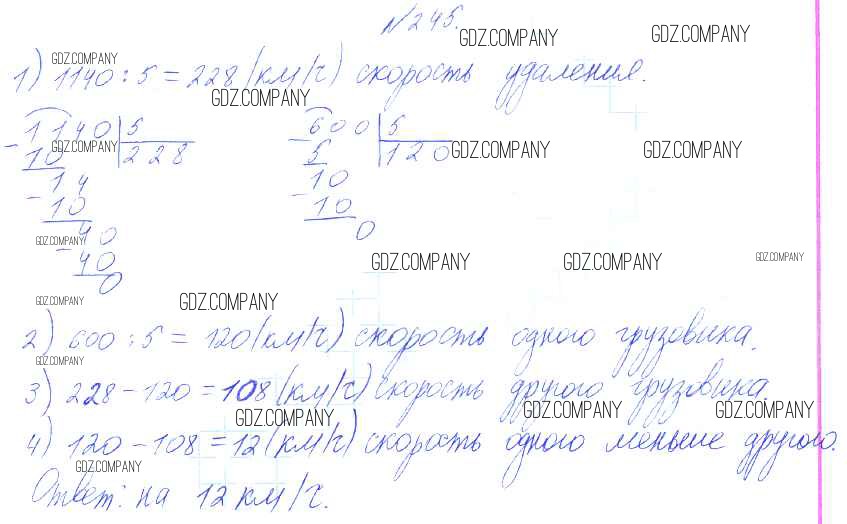 №245.
GDZ.COMPANY GDZ.COMPANY GDZ.COMPANY
1) 1140 : 5 = 228 (км/ч) скорость удаления.
GDZ.COMPANY
1140 | 5 600 | 5
10 228 5 120
GDZ.COMPANY GDZ.COMPANY GDZ.COMPANY
14 10
10 10
40 0
40
0
GDZ.COMPANY GDZ.COMPANY GDZ.COMPANY GDZ.COMPANY
GDZ.COMPANY GDZ.COMPANY
2) 600 : 5 = 120 (км/ч) скорость одного грузовика.
GDZ.COMPANY
3) 228 - 120 = 108 (км/ч) скорость другого грузовика.
GDZ.COMPANY GDZ.COMPANY GDZ.COMPANY
4) 120 - 108 = 12 (км/ч) скорость одного меньше другого.
GDZ.COMPANY
Ответ: на 12 км/ч.